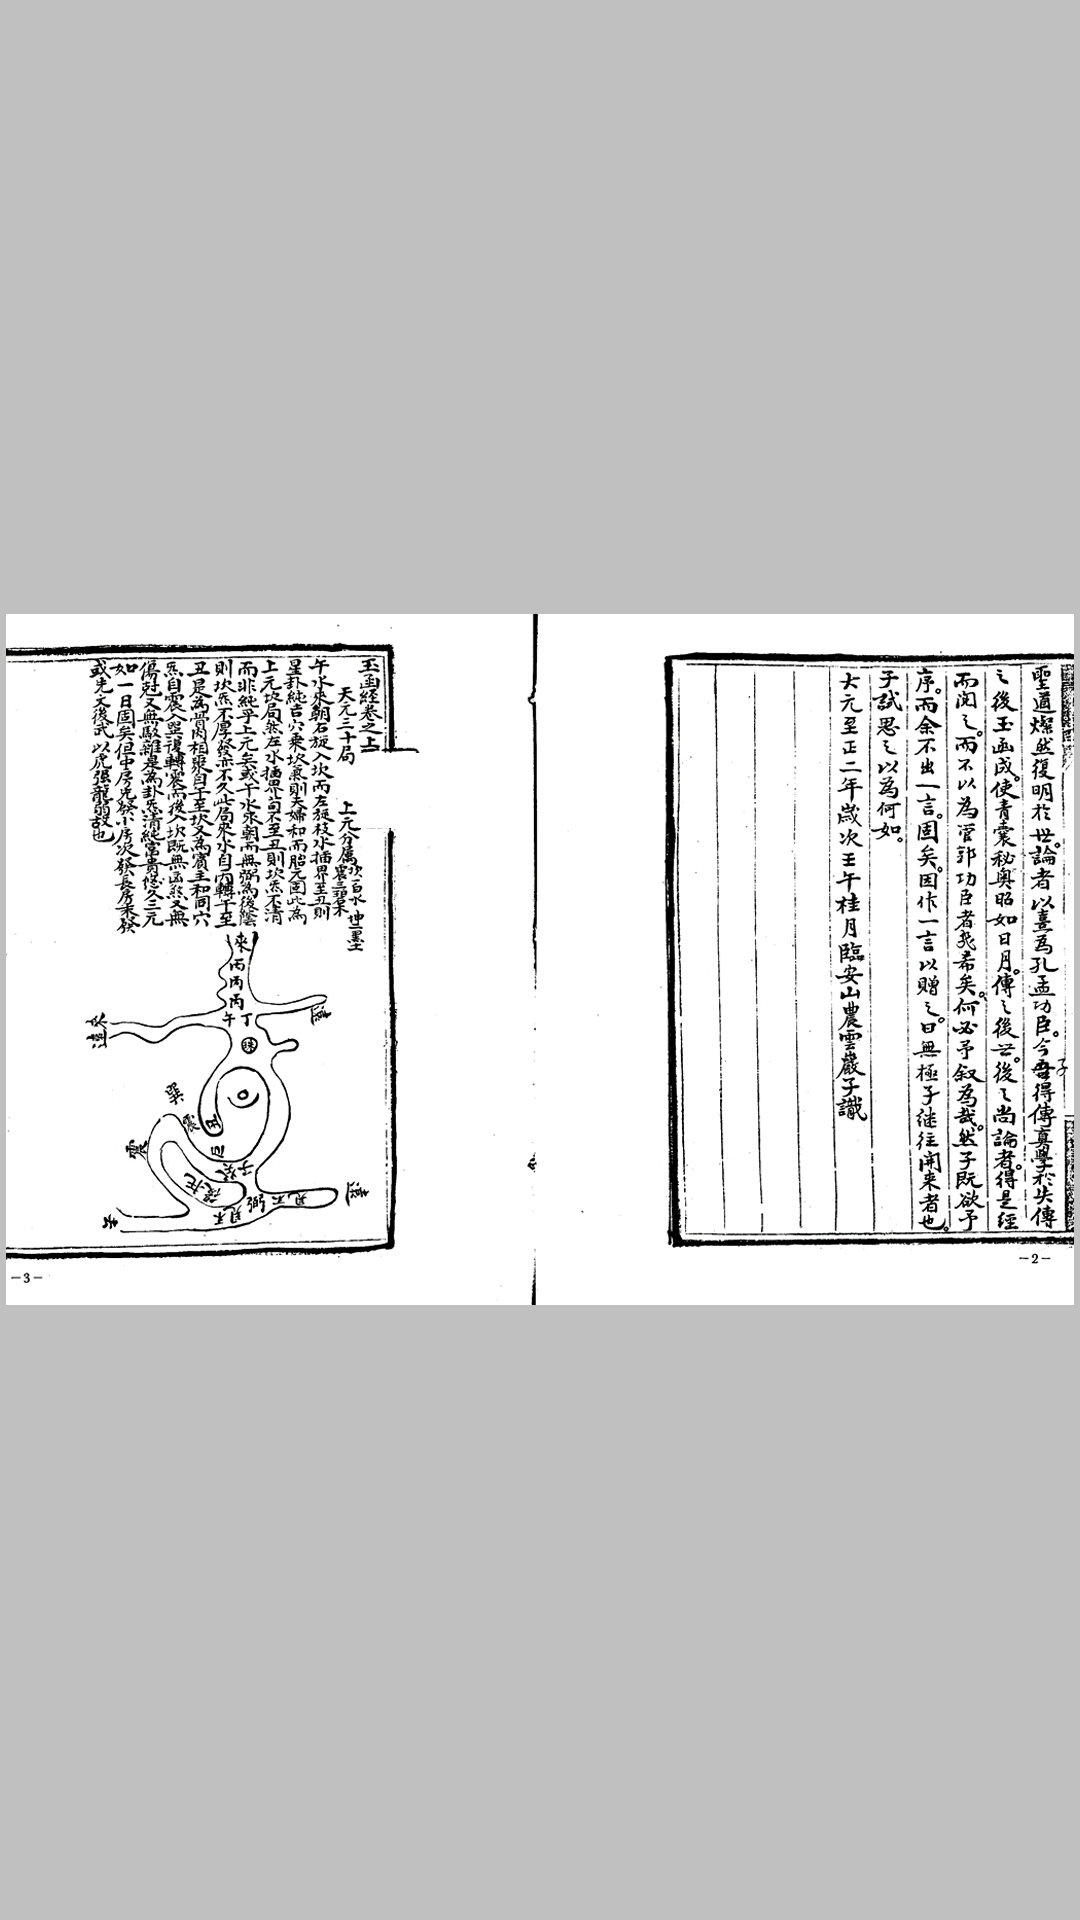 聖道燦然復明於世。論者以喜為孔孟功臣。今吾子得傳真學於失傳
之後玉函成。使青囊秘奧昭如日月。傳之後世。後之尚論者。得是經
而閱之。而不以為管郭功臣者幾希矣。何必予叙為哉。然子既欲予
序。而余不出一言。固矣。因作一言以贈之。曰無極子继往開来者也。
子試思之以為何如。
大元至正二年歲次壬午桂月臨安山農雲巖子識
－2－
玉函經卷之上
天元三十局 上元分屬坎一白水 坤二墨土 震三碧木
午水來朝右旋入坎而左旋枝水插界至丑則
星卦純吉穴乘坎氣則夫婦和而胎元固此為
上元坎局然左水插界苟不至丑則坎炁不清
而非純乎上元矣或午水來朝而無弼為後蔭
則坎炁不厚發亦不久此局來水自丙轉午至
丑是為骨肉相聚自午至坎又為賓主和同穴
炁自震入巽復轉震而後入坎既無凶煞又無
傷尅又無駁雜是為卦炁清純富貴悠久三元
如一日固矣但中房先發小房次發長房末發
或先文後武以虎强龍弱故也
來
丙
丙
丙
午丁
巽
震
震
丑
后
子癸
弼
去
－3－